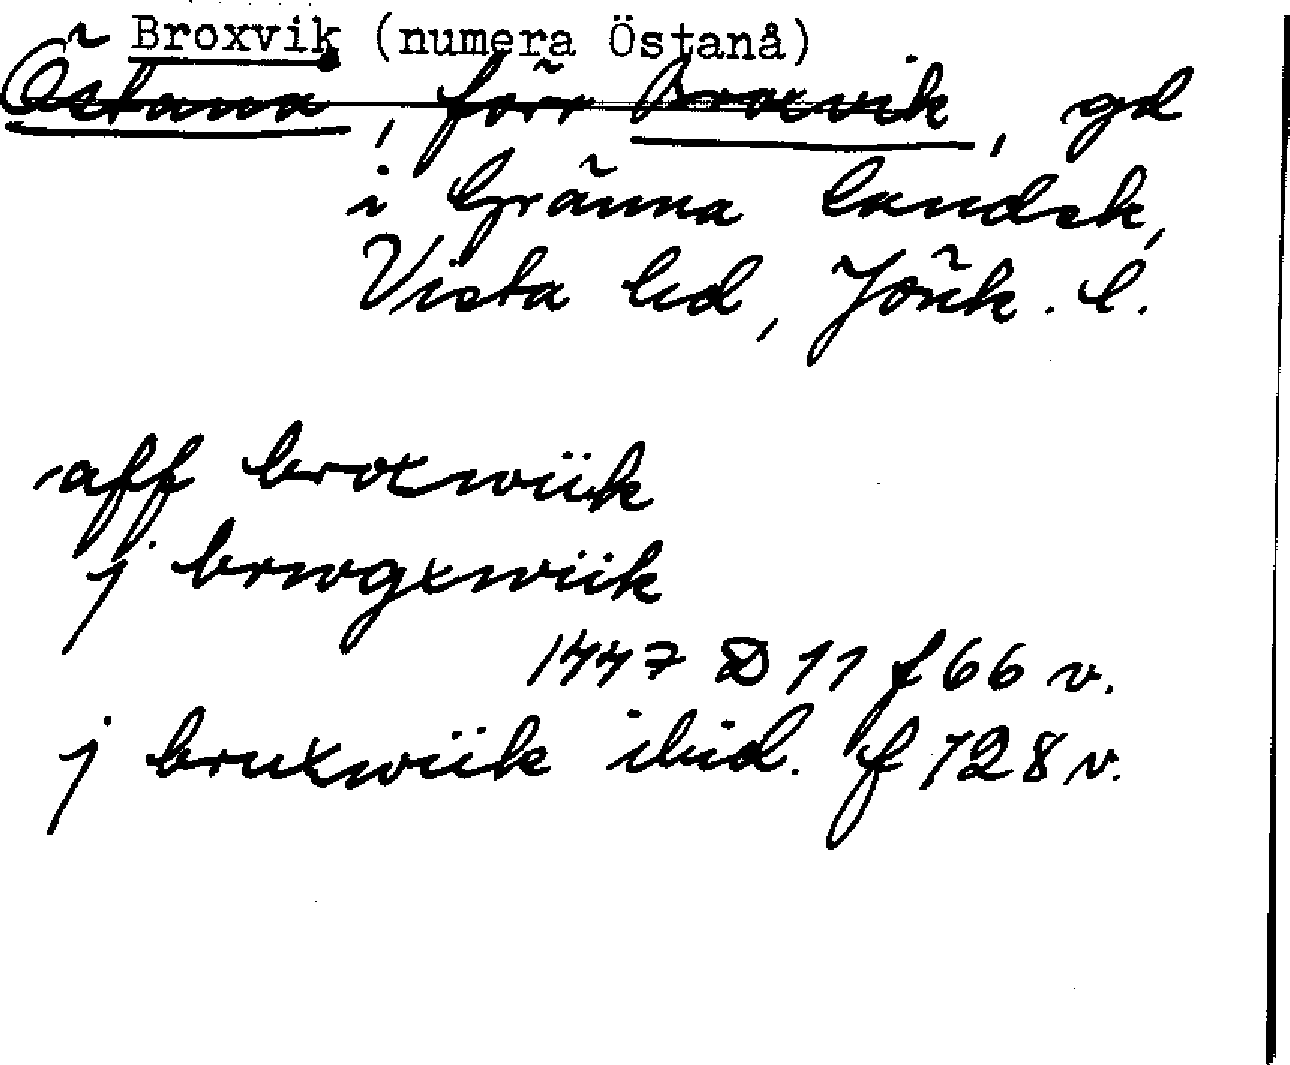 Broxvik (numera Östanå)
Östana, förr Broxvik, gd
i Gränna landsk,
Vista hd, Jönk. l.
aff broxwiik
j brwgxwiik
1447 D 11 f 66 v.
j bruxwiik ibid. f 128 v.